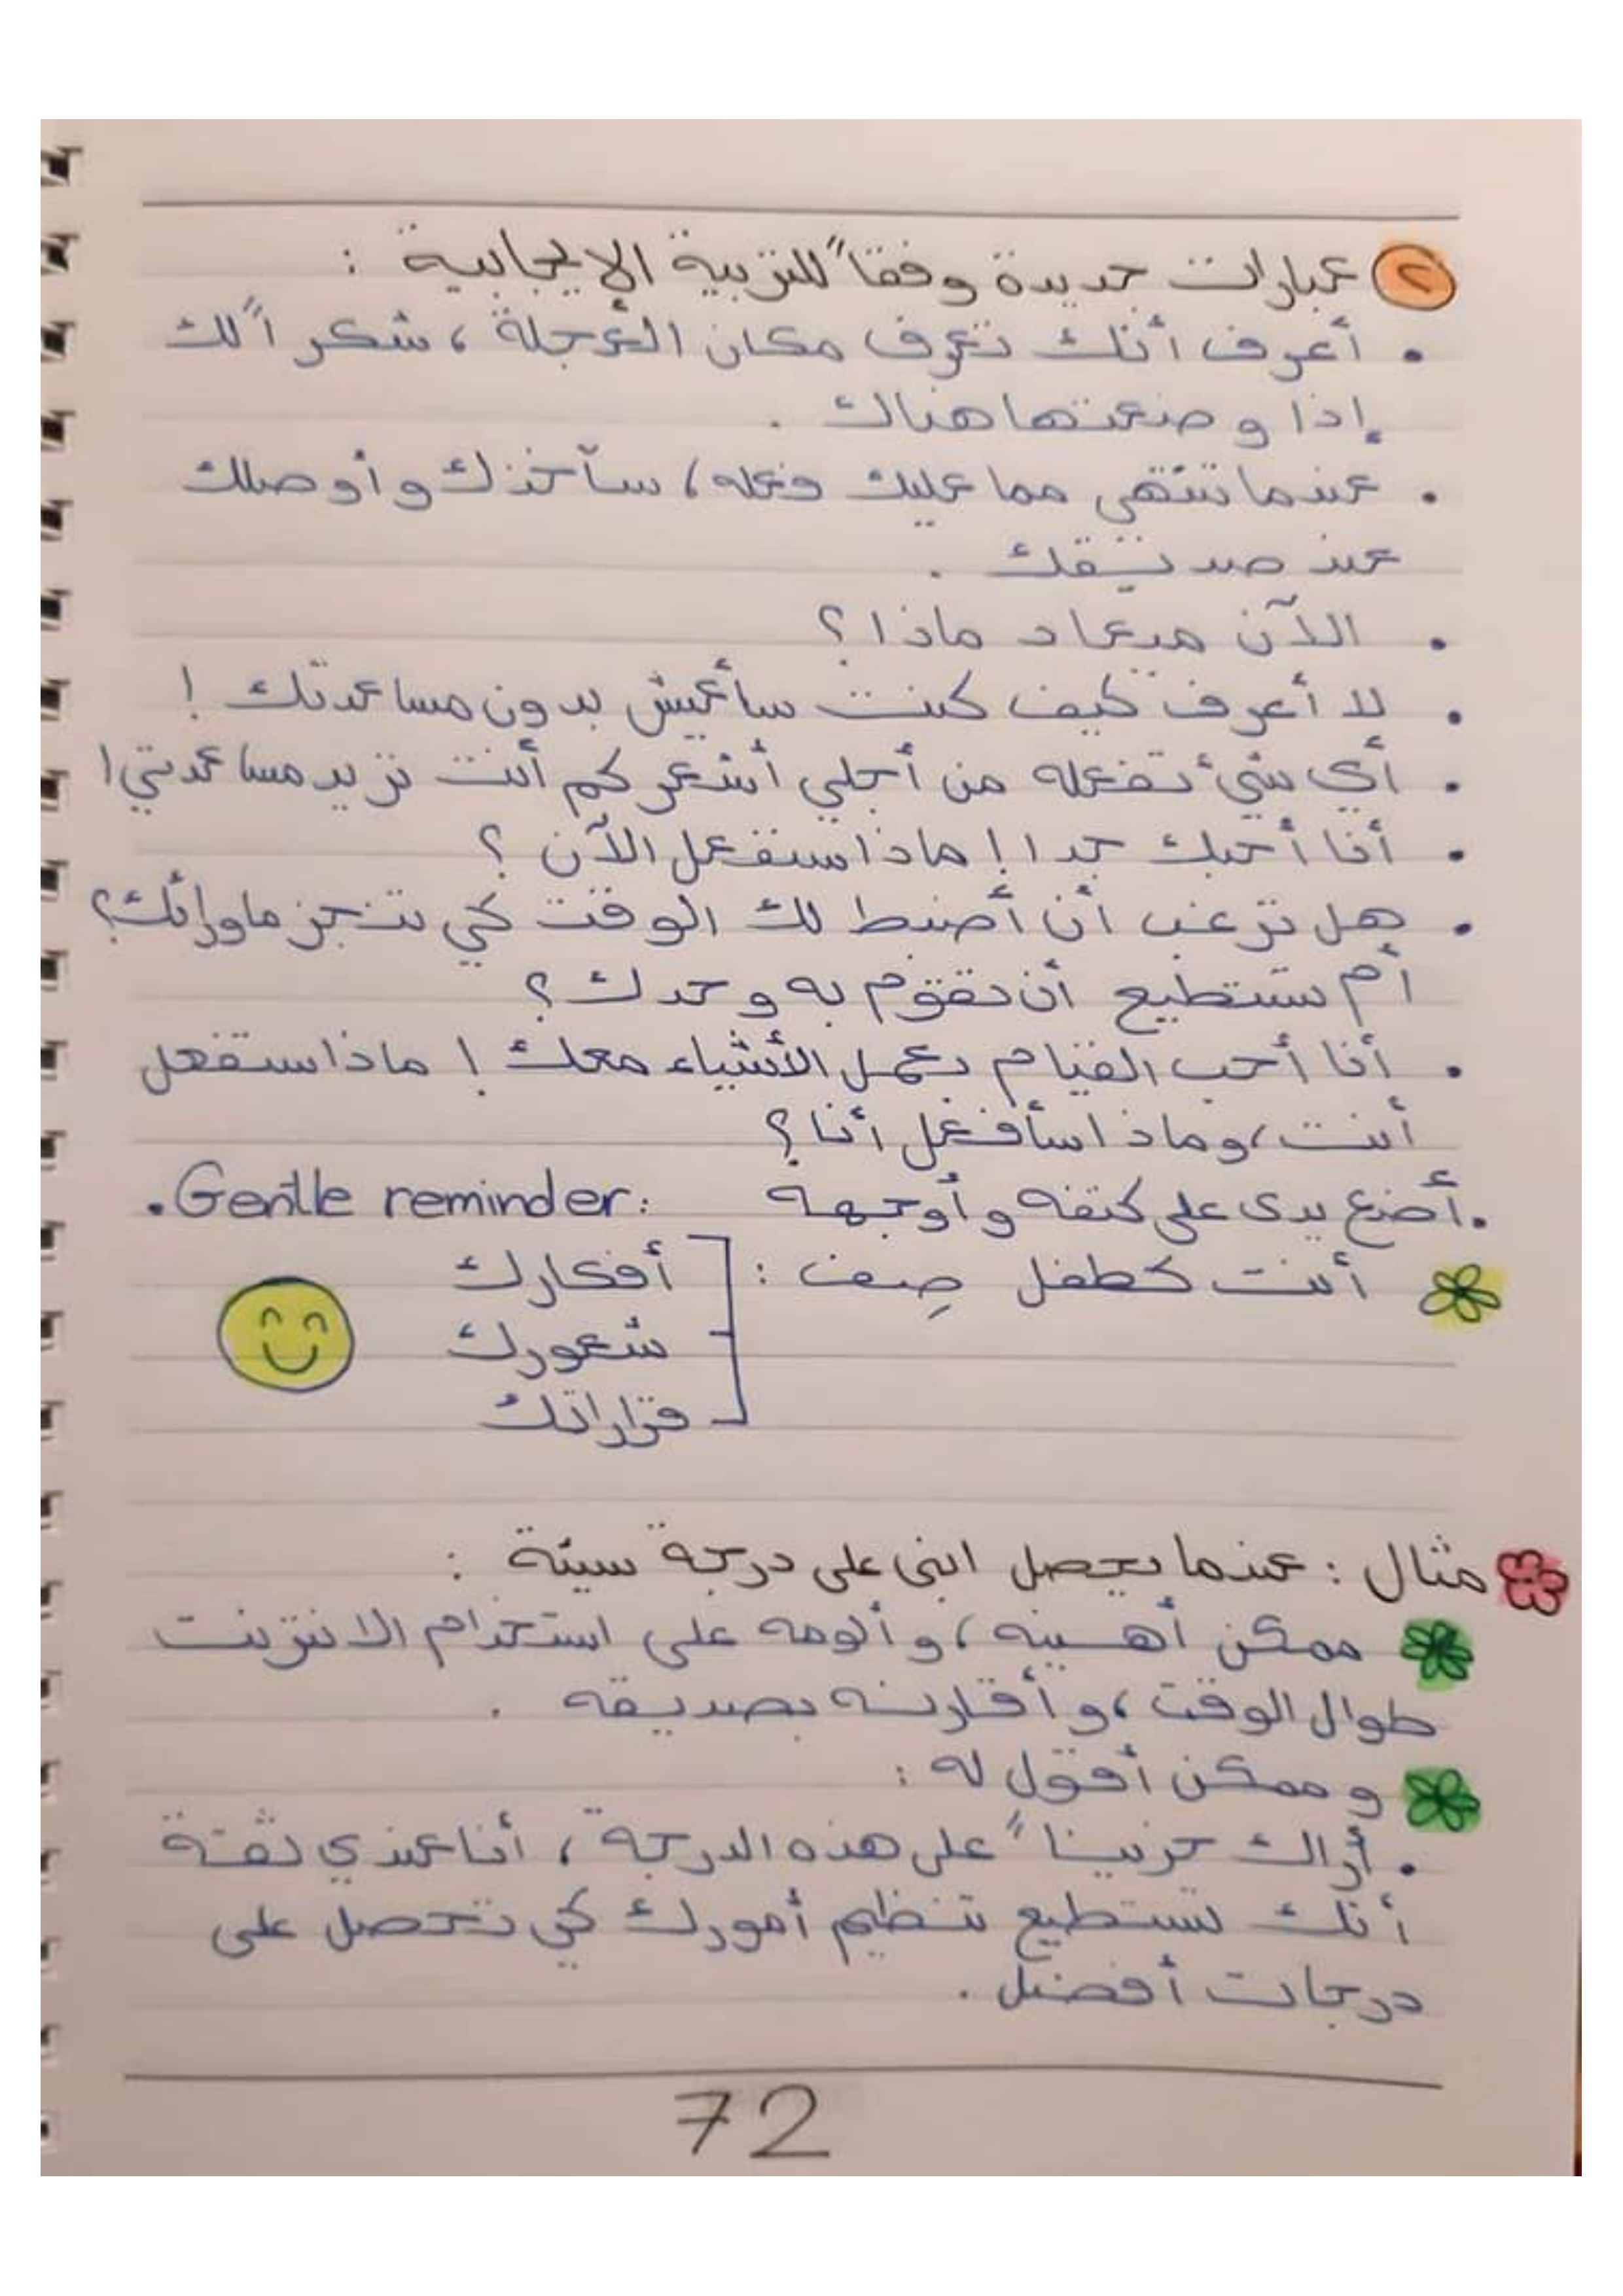 ٢ عبارات جديدة وفقاً للتربية الإيجابية :
• أعرف أنك تعرف مكان العجلة ، شكراً لك
إذا وضعتها هناك .
• عندما تنتهي مما عليك فعله ، سآخذك وأوصلك
عند صديقك .
• الآن ميعاد ماذا ؟
• لا أعرف كيف كنت سأعيش بدون مساعدتك !
• أي شيء تفعله من أجلي أشعر كم أنت تريد مساعدتي !
• أنا أحبك جدا ! ماذا ستفعل الآن ؟
• هل ترغب أن أضبط لك الوقت كي تنجز ماورائك ؟
أم تستطيع أن تقوم به وحدك ؟
• أنا أحب القيام بعمل الأشياء معك ! ماذا ستفعل
أنت ، وماذا سأفعل أنا ؟
• أضع يدى على كتفه وأوجهه
• Gentle reminder:
أنت كطفل صِف : أفكارك
شعورك
قراراتك
مثال : عندما يحصل ابنى على درجة سيئة :
ممكن أهينه ، وألومه على استخدام الانترنت
طوال الوقت ، وأقارنه بصديقه .
وممكن أقول له :
• أراك حزيناً على هذه الدرجة ، أنا عندي ثقة
أنك تستطيع تنظيم أمورك كي تحصل على
درجات أفضل .
72